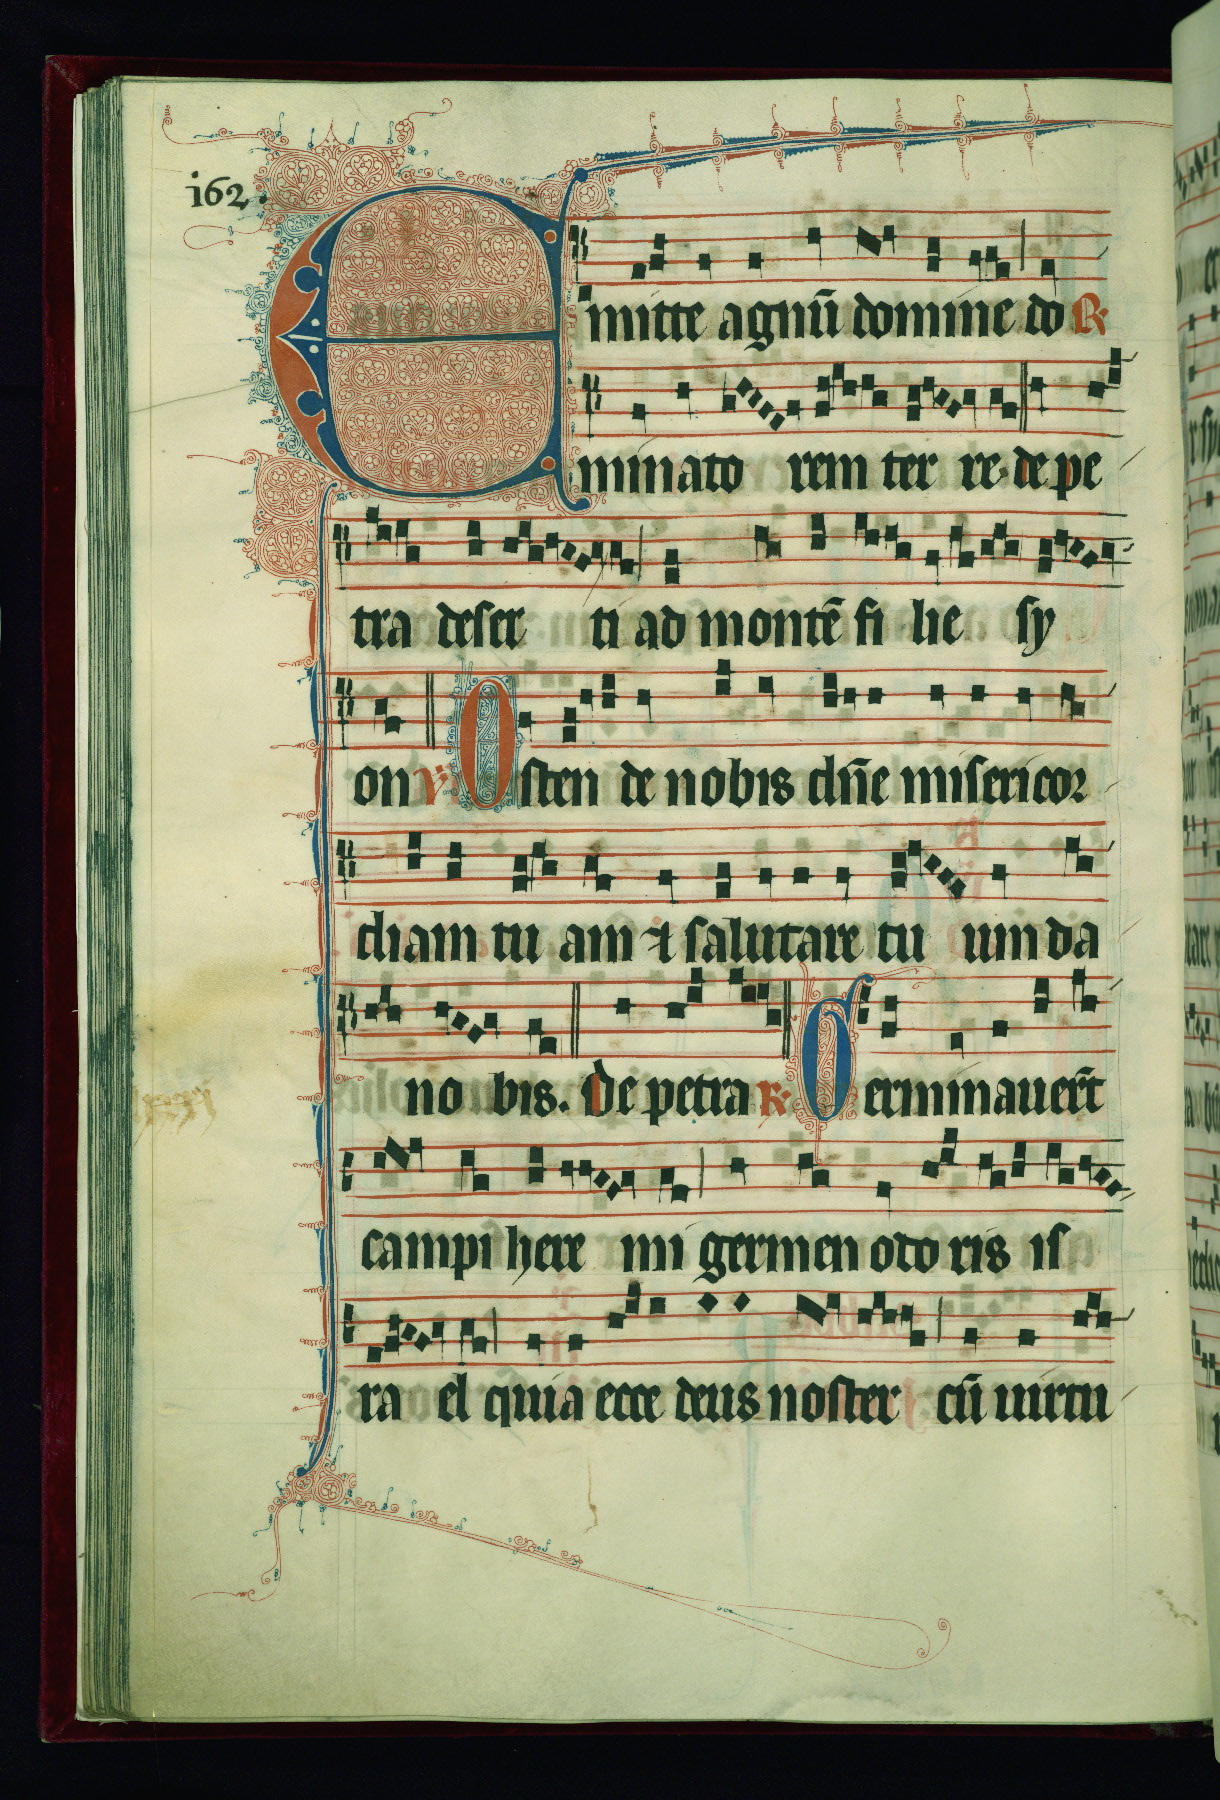 i62.
Emitte agnū domine do R
minato rem ter re de pe
tra deser ti ad montē fi lie sy
on V Osten de nobis dn̄e misericor
diam tu am ⁊ salutare tu um da
no bis. De petra R Germinauer̄t
campi here mi germen odo ris is
ra el quia ecce deus noster cū uirtu